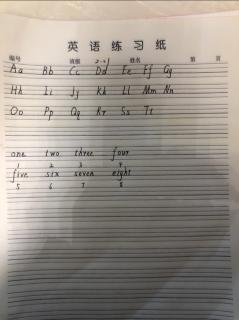 英语练习纸
编号 班级 2-2 姓名 第 页
Aa Bb Cc Dd Ee Ff Gg
Hh Ii Jj Kk Ll Mm Nn
Oo Pp Qq Rr Ss Tt
one two three four
1 2 3 4
five six seven eight
5 6 7 8